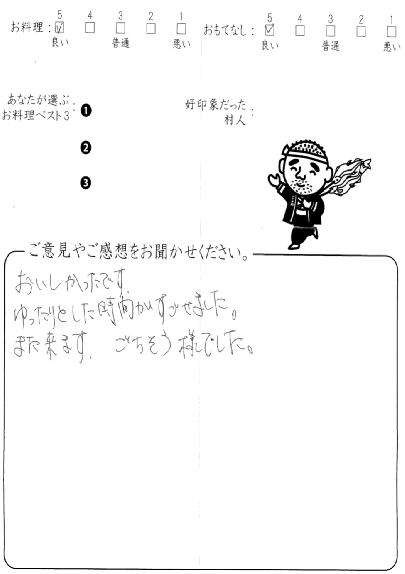 お料理: 5 4 3 2 1 おもてなし: 5 4 3 2 1
良い 普通 悪い 良い 普通 悪い
あなたが選ぶ お料理ベスト3: ❶ 好印象だった 村人:
❷
❸
ご意見やご感想をお聞かせください。
おいしかったです.
ゆったりとした時間がすごせました。
また来ます. ごちそう様でした。